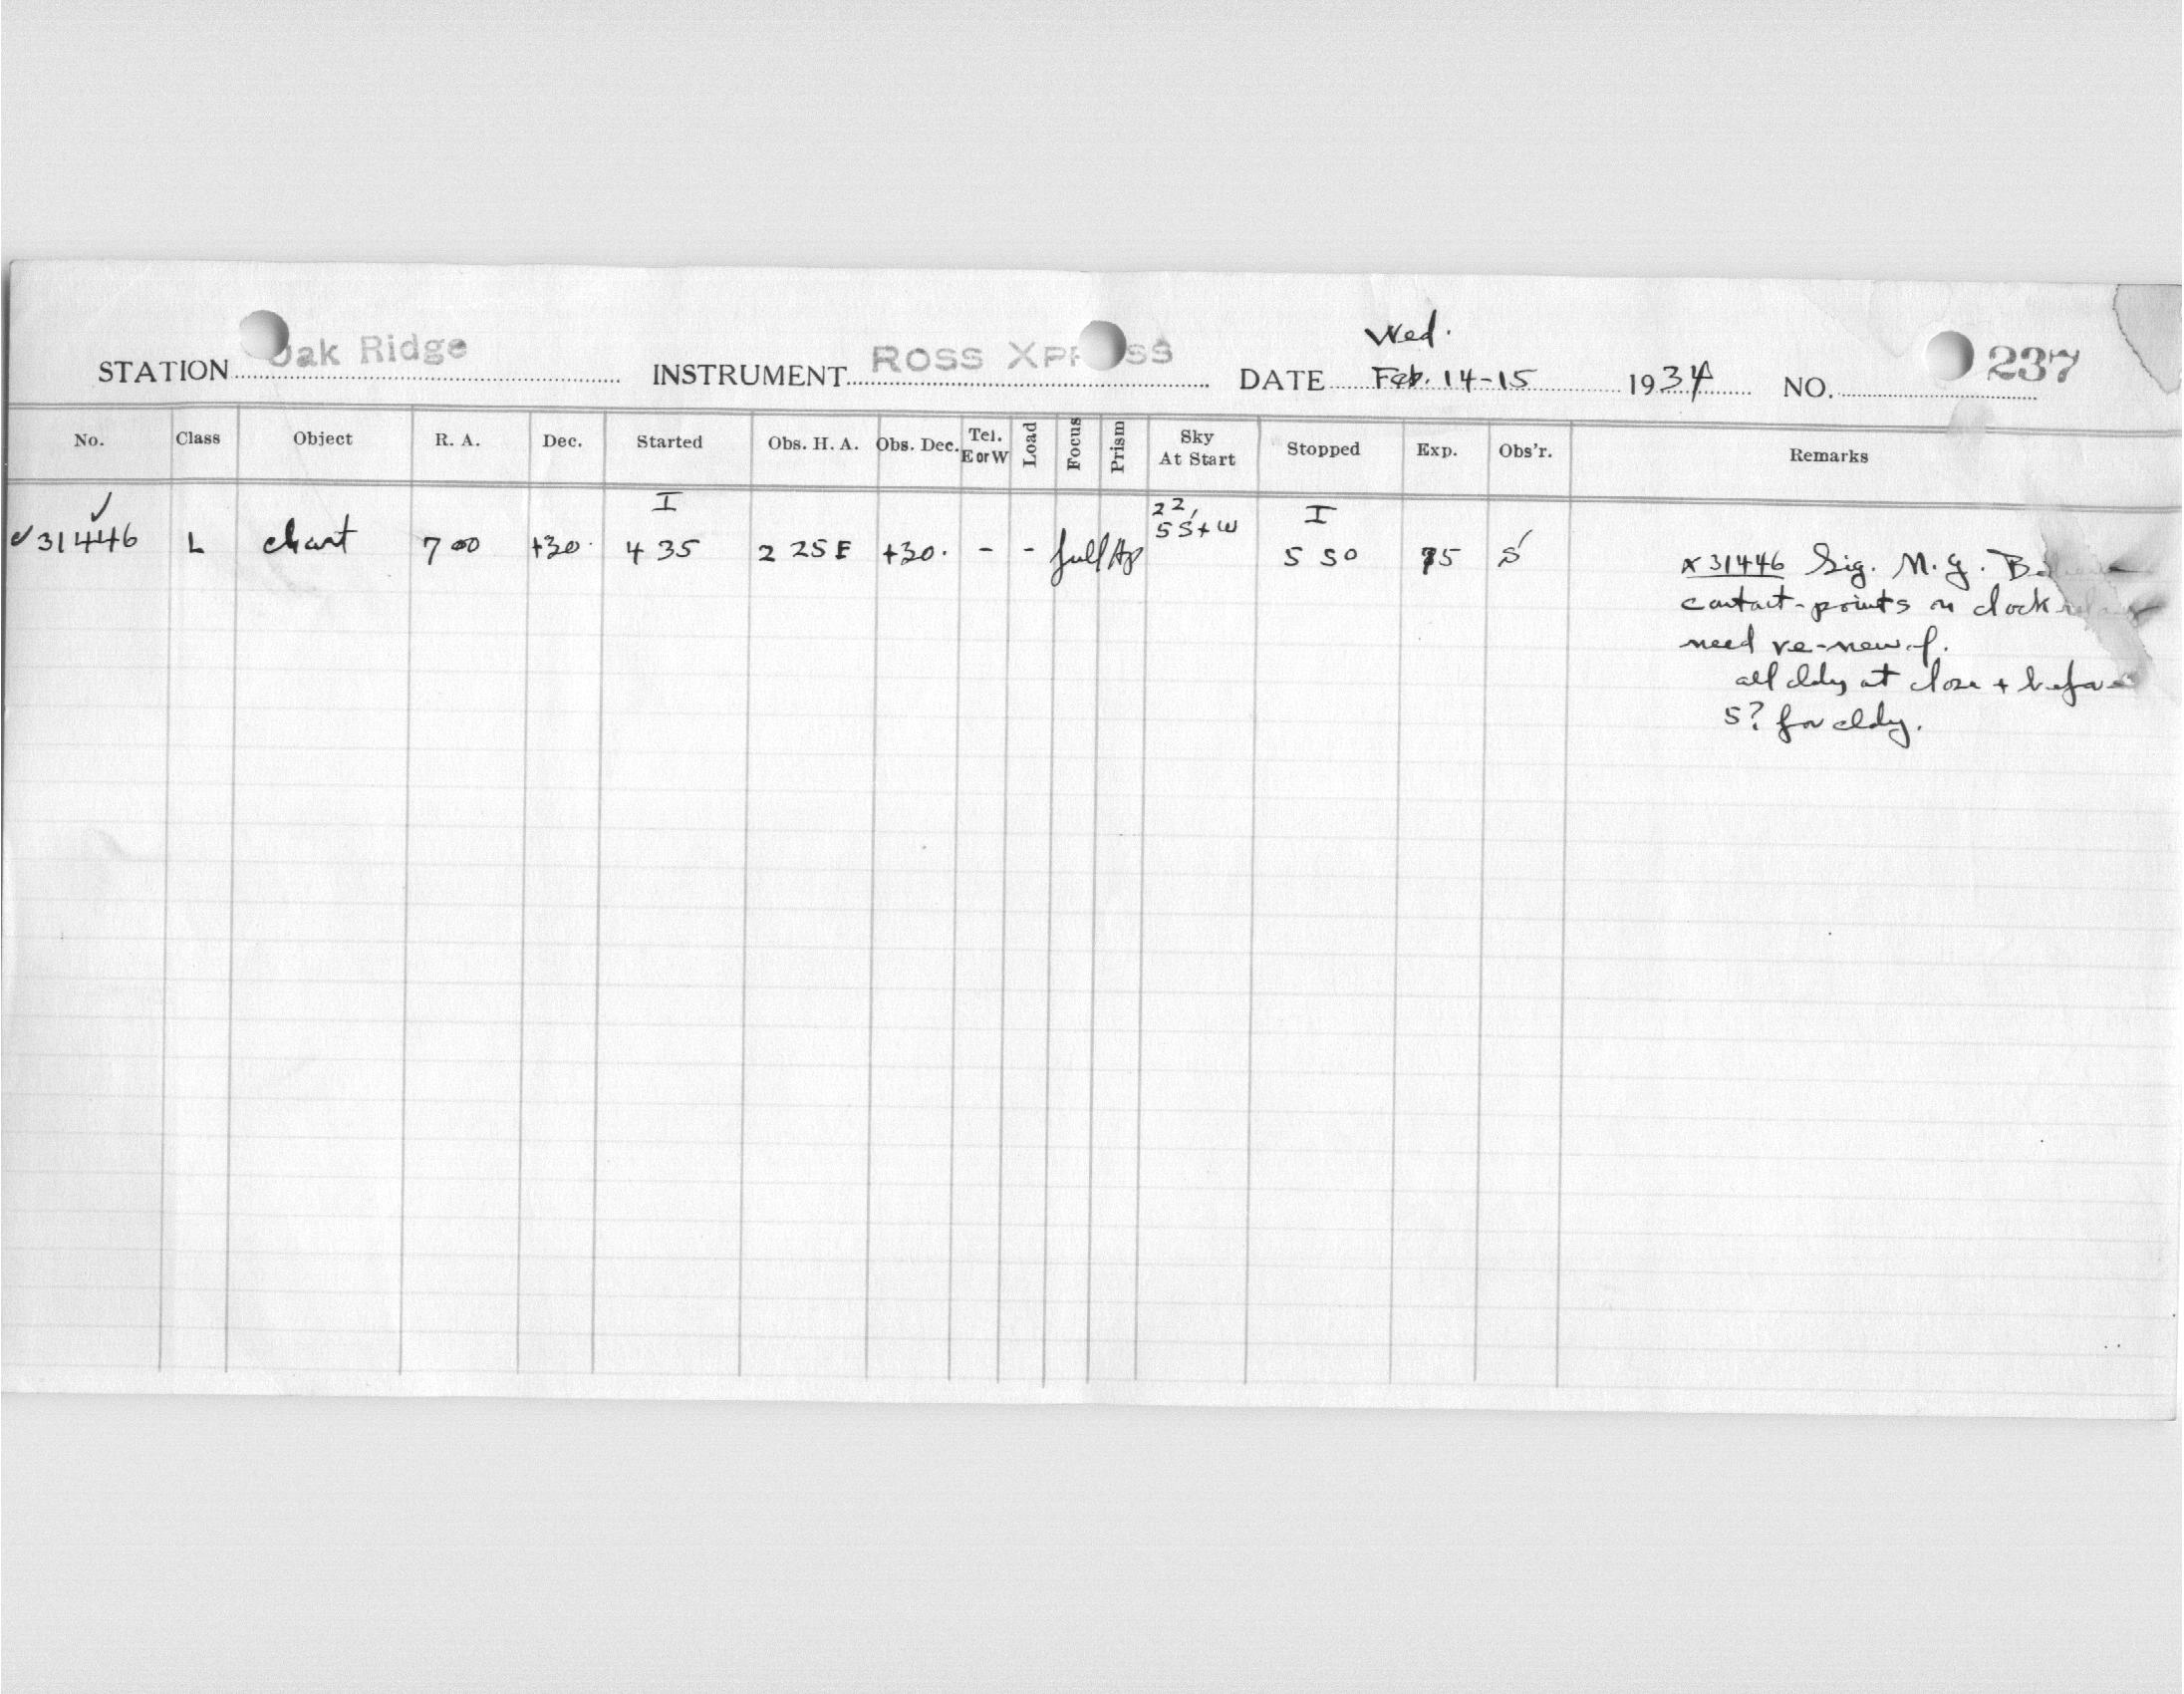 Wed.
STATION Oak Ridge INSTRUMENT ROSS XPRESS DATE Feb. 14-15 1934 NO. 237
No. Class Object R. A. Dec. Started Obs. H. A. Obs. Dec. Tel. E or W Load Focus Prism Sky At Start Stopped Exp. Obs'r. Remarks
I 22, I
✓31446 L chart 7 00 +30· 4 35 2 25 E +30· - - full Ap 5 S+W 5 50 75 S
x 31446 Sig. N. g.
contact-points on clock
need re-new
all cldy at close + before
5? for cldy.